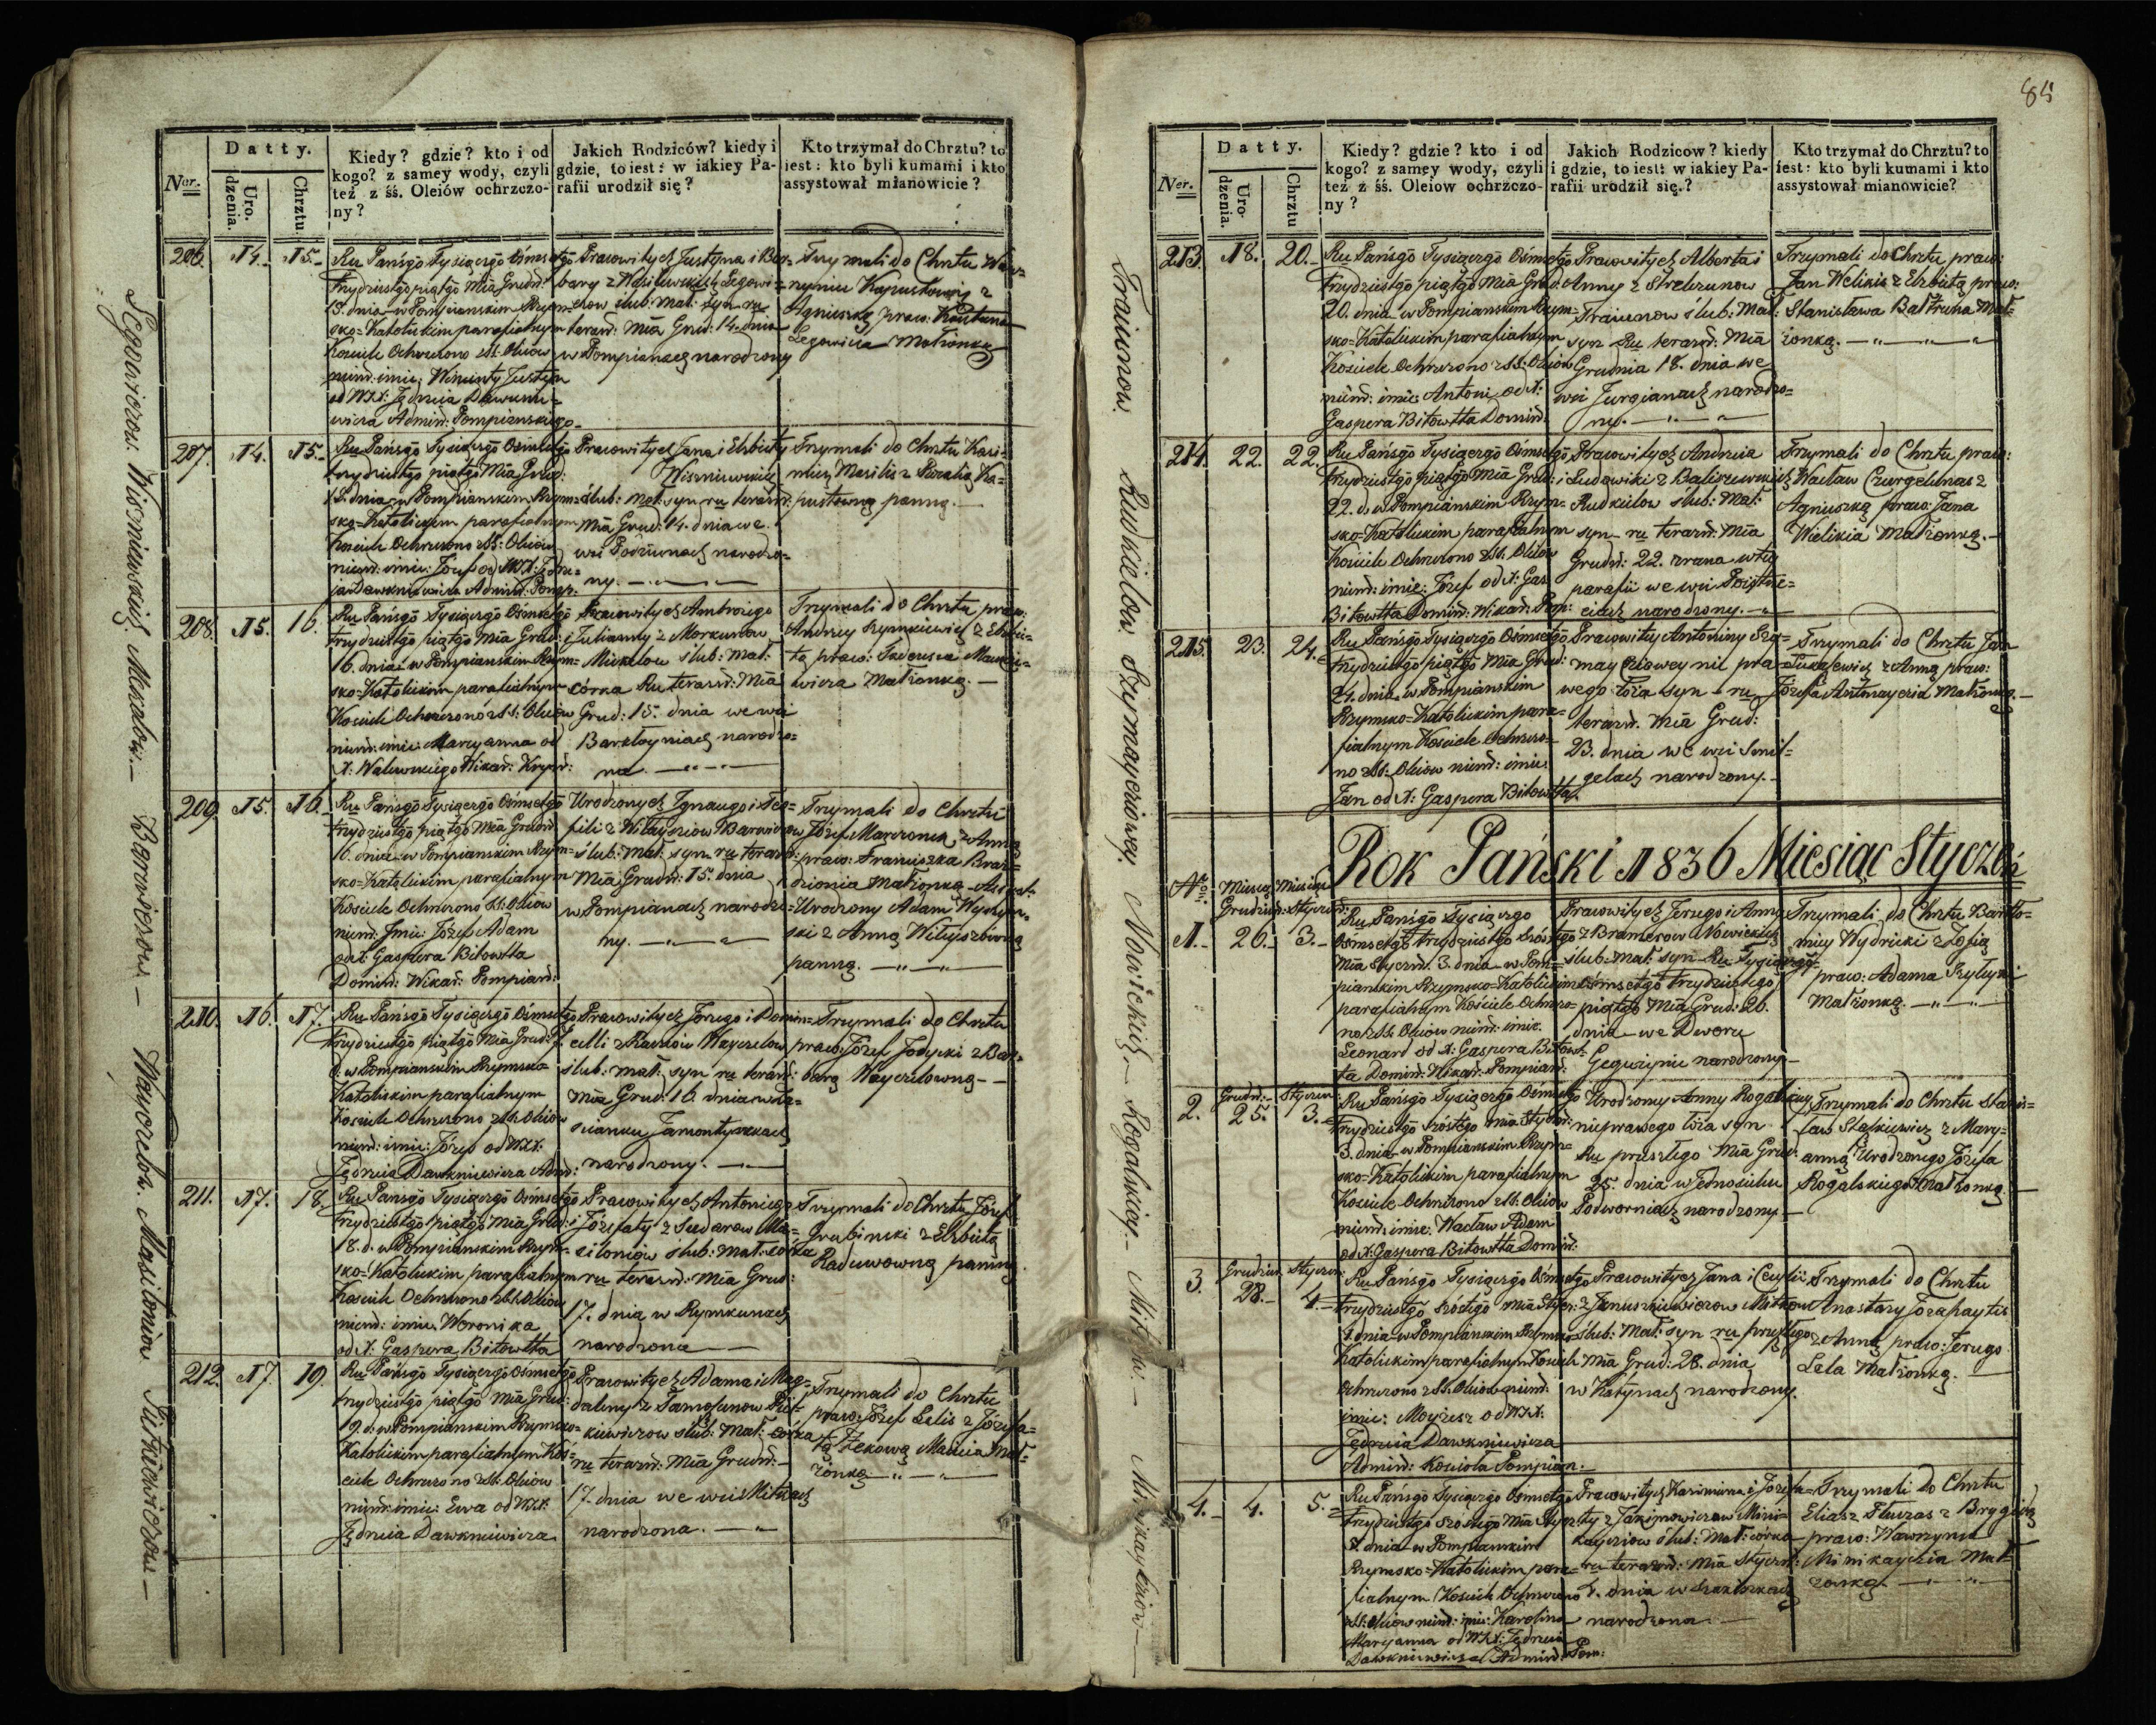 85
Datty.
Ner.
Uro.
dzenia.
Chrztu.
Kiedy? gdzie? kto i od
kogo? z samey wody, czyli
też z śś. Oleiów ochrzczo-
ny?
Jakich Rodziców? kiedy i
gdzie, to iest: w iakiey Pa-
rafii urodził się?
Kto trzymał do Chrztu? to
iest: kto byli kumami i kto
assystował mianowicie?
206. 14. 15.
Ru Pańsgo Tysiącgo Ośmsetgo
trzydziestgo piątgo Mia Grud:
15. dnia w Pompianskim Rzym=
sko=Katolickim parafialnym
Kosciele Ochrzczono z SS: Oliow
niem: imie: Wincenty Justyn
od WJX: Jędrzeia Dawknie=
wicza Admin: Pompianskiego
Pracowitych Justyna i Bar=
bary z Wasilewskich Legowi=
czow ślub: mał: syn ru
terazn: Mia Grud: 14. dnia
w Pompianach narodzony
Trzymali do Chrztu Waw=
rzyniec z
Agnieszką praw:
Legowicza Małżonką
207. 14. 15.
Ru Pańsgo Tysiącgo Ośmsetgo
trzydziestgo piątgo Mia Grud:
15. dnia w Pompianskim Rzym=
sko=Katolickim parafialnym
Kosciele Ochrzczono z SS: Oliow
niem: imie: Józef od WJX: Jędrze=
ja Dawkniewicza Admin: Pomp:
Pracowitych Jana i Elżbiety
Wiszniewskich
ślub: mał: syn ru terazn:
Mia Grud: 14. dnia we
wsi Podziunach narodzo=
ny.
Trzymali do Chrztu Kazi=
mierz Masilis z Rozalią Ka=
pustowną panną.
208. 15. 16.
Ru Pańsgo Tysiącgo Ośmsetgo
trzydziestgo piątgo Mia Grud:
16. dnia w Pompianskim Rzym=
sko=Katolickim parafialnym
Kosciele Ochrzczono z SS: Oliow
niem: imie: Maryanna od
X: Walewskiego Wikar:
Pracowitych Ambrożego
i Julianny z Morkunow
Mickelow ślub: Mał:
córka Ru terazn: Mia
Grud: 15. dnia we wsi
Barkłoyniach narodzo=
na.
Trzymali do Chrztu praw:
Andrzey Szymkiewicz z Elżbie=
tą praw: Tadeusza
wicza Małżonką.
209. 15. 16.
Ru Pańsgo Tysiącgo Ośmsetgo
trzydziestgo piątgo Mia Grud:
16. dnia w Pompianskim Rzym=
sko=Katolickim parafialnym
Kosciele Ochrzczono z SS: Oliow
niem: Imie: Józef Adam
od X: Gaspera Bitowtta
Domin: Wikar: Pompian:
Urodzonych Ignacego i Teo=
fili z Barwiczow
ślub: mał: syn ru terazn:
Mia Grud: 15. dnia
w Pompianach narodzo=
ny.
Trzymali do Chrztu
Józef Marczonek z Anną
praw: Franciszka Bra=
dzionia Małżonką
Urodzony Adam
ski z Anną
panną.
210. 16. 17.
Ru Pańsgo Tysiącgo Ośmsetgo
trzydziestgo piątgo Mia Grud: 17.
d: w Pompianskim Rzymsko=
Katolickim parafialnym
Kosciele Ochrzczono z SS: Oliow
niem: imie: Józef od WJX:
Jędrzeia Dawkniewicza Adm:
Pracowitych Jerzego i Domin=
celli z Wayczelow
ślub: mał: syn ru terazn:
Mia Grud: 16. dnia w za=
scianku Jamontyszkach
narodzony.
Trzymali do Chrztu
praw: Józef Jodycki z Bar=
barą Waycielowną
211. 17. 18.
Ru Pańsgo Tysiącgo Ośmsetgo
trzydziestgo piątgo Mia Grud:
18. d: w Pompianskim Rzym=
sko=Katolickim parafialnym
Kosciele Ochrzczono z SS: Oliow
niem: imie: Weronika
od X: Gaspera Bitowtta
Pracowitych Antoniego
i Józefaty z Sudarow Ma=
siloniow ślub: mał: córka
ru terazn: Mia Grud:
17. dnia w Rymkunach
narodzona
Trzymali do Chrztu Józef
Grabinski z Elżbietą
Raduwowną panną.
212. 17. 19.
Ru Pańsgo Tysiącgo Ośmsetgo
trzydziestgo piątgo Mia Grud:
19. d: w Pompianskim Rzymsko=
Katolickim parafialnym Kos=
ciele Ochrzczono z SS: Oliow
niem: imie: Ewa od WJX:
Jędrzeia Dawkniewicza
Pracowitych Adama i Mag=
daleny z Piet=
kiewiczow ślub: Mał: córka
ru terazn: Mia Grud:
17. dnia we wsi Mitkach
narodzona.
Trzymali do Chrztu
praw: Józef Lelis z Józefa=
tą Macieia Mał=
żonką
Legowiczow. Wiszniewskich. Mickelow.
Barwiczow Waycielow. Masiloniow Pietkiewiczow
Datty.
Ner.
Uro-
dzenia.
Chrztu
Kiedy? gdzie? kto i od
kogo? z samey wody, czyli
też z śś. Oleiow ochrzczo-
ny?
Jakich Rodzicow? kiedy
i gdzie, to iest: w iakiey Pa-
rafii urodził się.?
Kto trzymał do Chrztu? to
iest: kto byli kumami i kto
assystował mianowicie?
213. 18. 20.
Ru Pańsgo Tysiącgo Ośmsetgo
trzydziestgo piątgo Mia Grud:
20. dnia w Pompianskim Rzym=
sko=Katolickim parafialnym
Kosciele Ochrzczono z SS: Oliow
niem: imie: Antoni od X:
Gaspera Bitowtta Domin:
Pracowitych Alberta i
Anny z Strelczunow
Traiunow ślub: Mał:
syn Ru terazn: Mia
Grudnia 18. dnia we
wsi Jurgianach narodzo=
ny.
Trzymali do Chrztu praw:
Jan Welikis z Elżbietą praw:
Stanisława Bałtruna Mał=
żonką.
214. 22. 22.
Ru Pańsgo Tysiącgo Ośmsetgo
trzydziestgo piątgo Mia Grud:
22. d. w Pompianskim Rzym=
sko=Katolickim parafialnym
Kosciele Ochrzczono z SS: Oliow
niem: imie: Józef od X: Gas:
Bitowtta Domin: Wikar: Pomp:
Pracowitych Andrzeia
i Ludowiki z Baliszewskich
Rudkielow ślub: Mał:
syn ru terazn: Mia
Grud: 22. zrana w tey
parafii we wsi
ciach narodzony.
Trzymali do Chrztu praw:
Wacław Czurgelunas z
Agnieszką praw: Jana
Wielikia Małżonką.
215. 23. 24.
Ru Pańsgo Tysiącgo Ośmsetgo
trzydziestgo piątgo Mia Grud:
24. dnia w Pompianskim
Rzymsko=Katolickim para=
fialnym Kosciele Ochrzczo=
no z SS: Oliow niem: imie:
Jan od X: Gaspera Bitowtta.
Pracowitey Antoniny Szy=
maycziowey nie pra=
wego łoża syn ru
terazn: Mia Grud:
23. dnia we wsi Smil=
gelach narodzony.
Trzymali do Chrztu Jan
Łukaszewicz z Anną praw:
Józefa Małżonką.
Rok Pański 1836 Miesiąc Styczeń
No. Miesiąc Miesiąc
Grudzień: Styczeń:
1. 26. 3.
Ru Pańsgo Tysiącgo
Ośmsetgo trzydziestgo szóstgo
Mia Styczn: 3. dnia w Pom=
pianskim Rzymsko=Katolickim
parafialnym Kosciele Ochrzczo=
no z SS. Oliow niem: imie:
Leonard od X: Gaspera Bitowt=
ta Domin: Wikar: Pompian:
Pracowitych Jerzego i Anny
z Bramerow Nowickich
ślub: mał: syn Ru Tysiącgo
Ośmsetgo trzydziestego
piątgo Mia Grud: 26.
dnia we Dworu
Gegużynie narodzony
Trzymali do Chrztu Bartło=
miey Wydricki z Zofią
praw: Adama
Małżonką.
2. Grudn: 25. Styczn: 3.
Ru Pańsgo Tysiącgo Ośmsetgo
trzydziestgo szóstgo Mia Styczn:
3. dnia w Pompianskim Rzym=
sko=Katolickim parafialnym
Kosciele Ochrzczono z SS. Oliow
niem: imie: Wacław Adam
od X: Gaspera Bitowtta Domin:
Urodzoney Anny Rogalskiey
nieprawego łoża syn
Ru przeszłego Mia Grud:
25. dnia w Jednosielu
Podworniach narodzony
Trzymali do Chrztu Stanis=
ław Stankiewicz z Mary=
anną Urodzonego Józefa
Rogalskiego Małżonką.
3. Grudzień 28. Styczn: 4.
Ru Pańsgo Tysiącgo Ośmsetgo
trzydziestgo szóstgo Mia Stycz:
4. dnia w Pompianskim Rzymsko
Katolickim parafialnym Kosciele
Ochrzczono z SS. Oliow niem:
imie: Moyżesz od WJX:
Jędrzeia Dawkniewicza
Admin: Kosciola Pompian:
Pracowitych Jana i Cecylii
z Januszkiewiczow Mitkow
ślub: Mał: syn ru przeszłego
Mia Grud: 28. dnia
w Kotynach narodzony.
Trzymali do Chrztu
Anastazy Jozapaytis
z Anną praw: Jerzego
Lela Małżonką.
4. 4. 5.
Ru Pańsgo Tysiącgo Ośmsetgo
trzydziestgo szostego Mia Stycz:
5. dnia w Pompianskim
Rzymsko=Katolickim para=
fialnym Kosciele Ochrzczono
z SS. Oliow niem: imie: Karolina
Maryanna od WJX: Jędrzeia
Dawkniewicza Admin: Pom:
Pracowitych Kazimierza i Józefa=
ty z Jakimowiczow Mini=
kaycziow ślub: Mał: córka
ru terazn: Mia Styczn:
4. dnia w
narodzona.
Trzymali do Chrztu
Eliasz z Brygidą
praw: Wawrzynca
Minikayczia Mał=
żonką.
Traiunow. Rudkielow Szymaycziowey. Nowickich. Rogalskiey. Mitkow. Minikaycziow